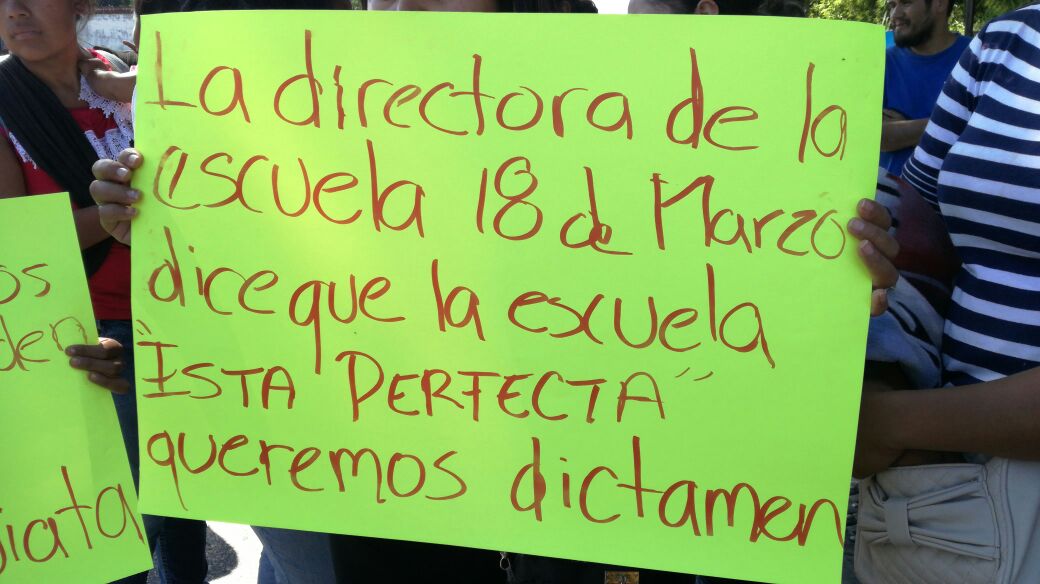 La directora de la
escuela 18 de Marzo
dice que la escuela
"ESTA PERFECTA"
queremos dictamen
os
den
iata